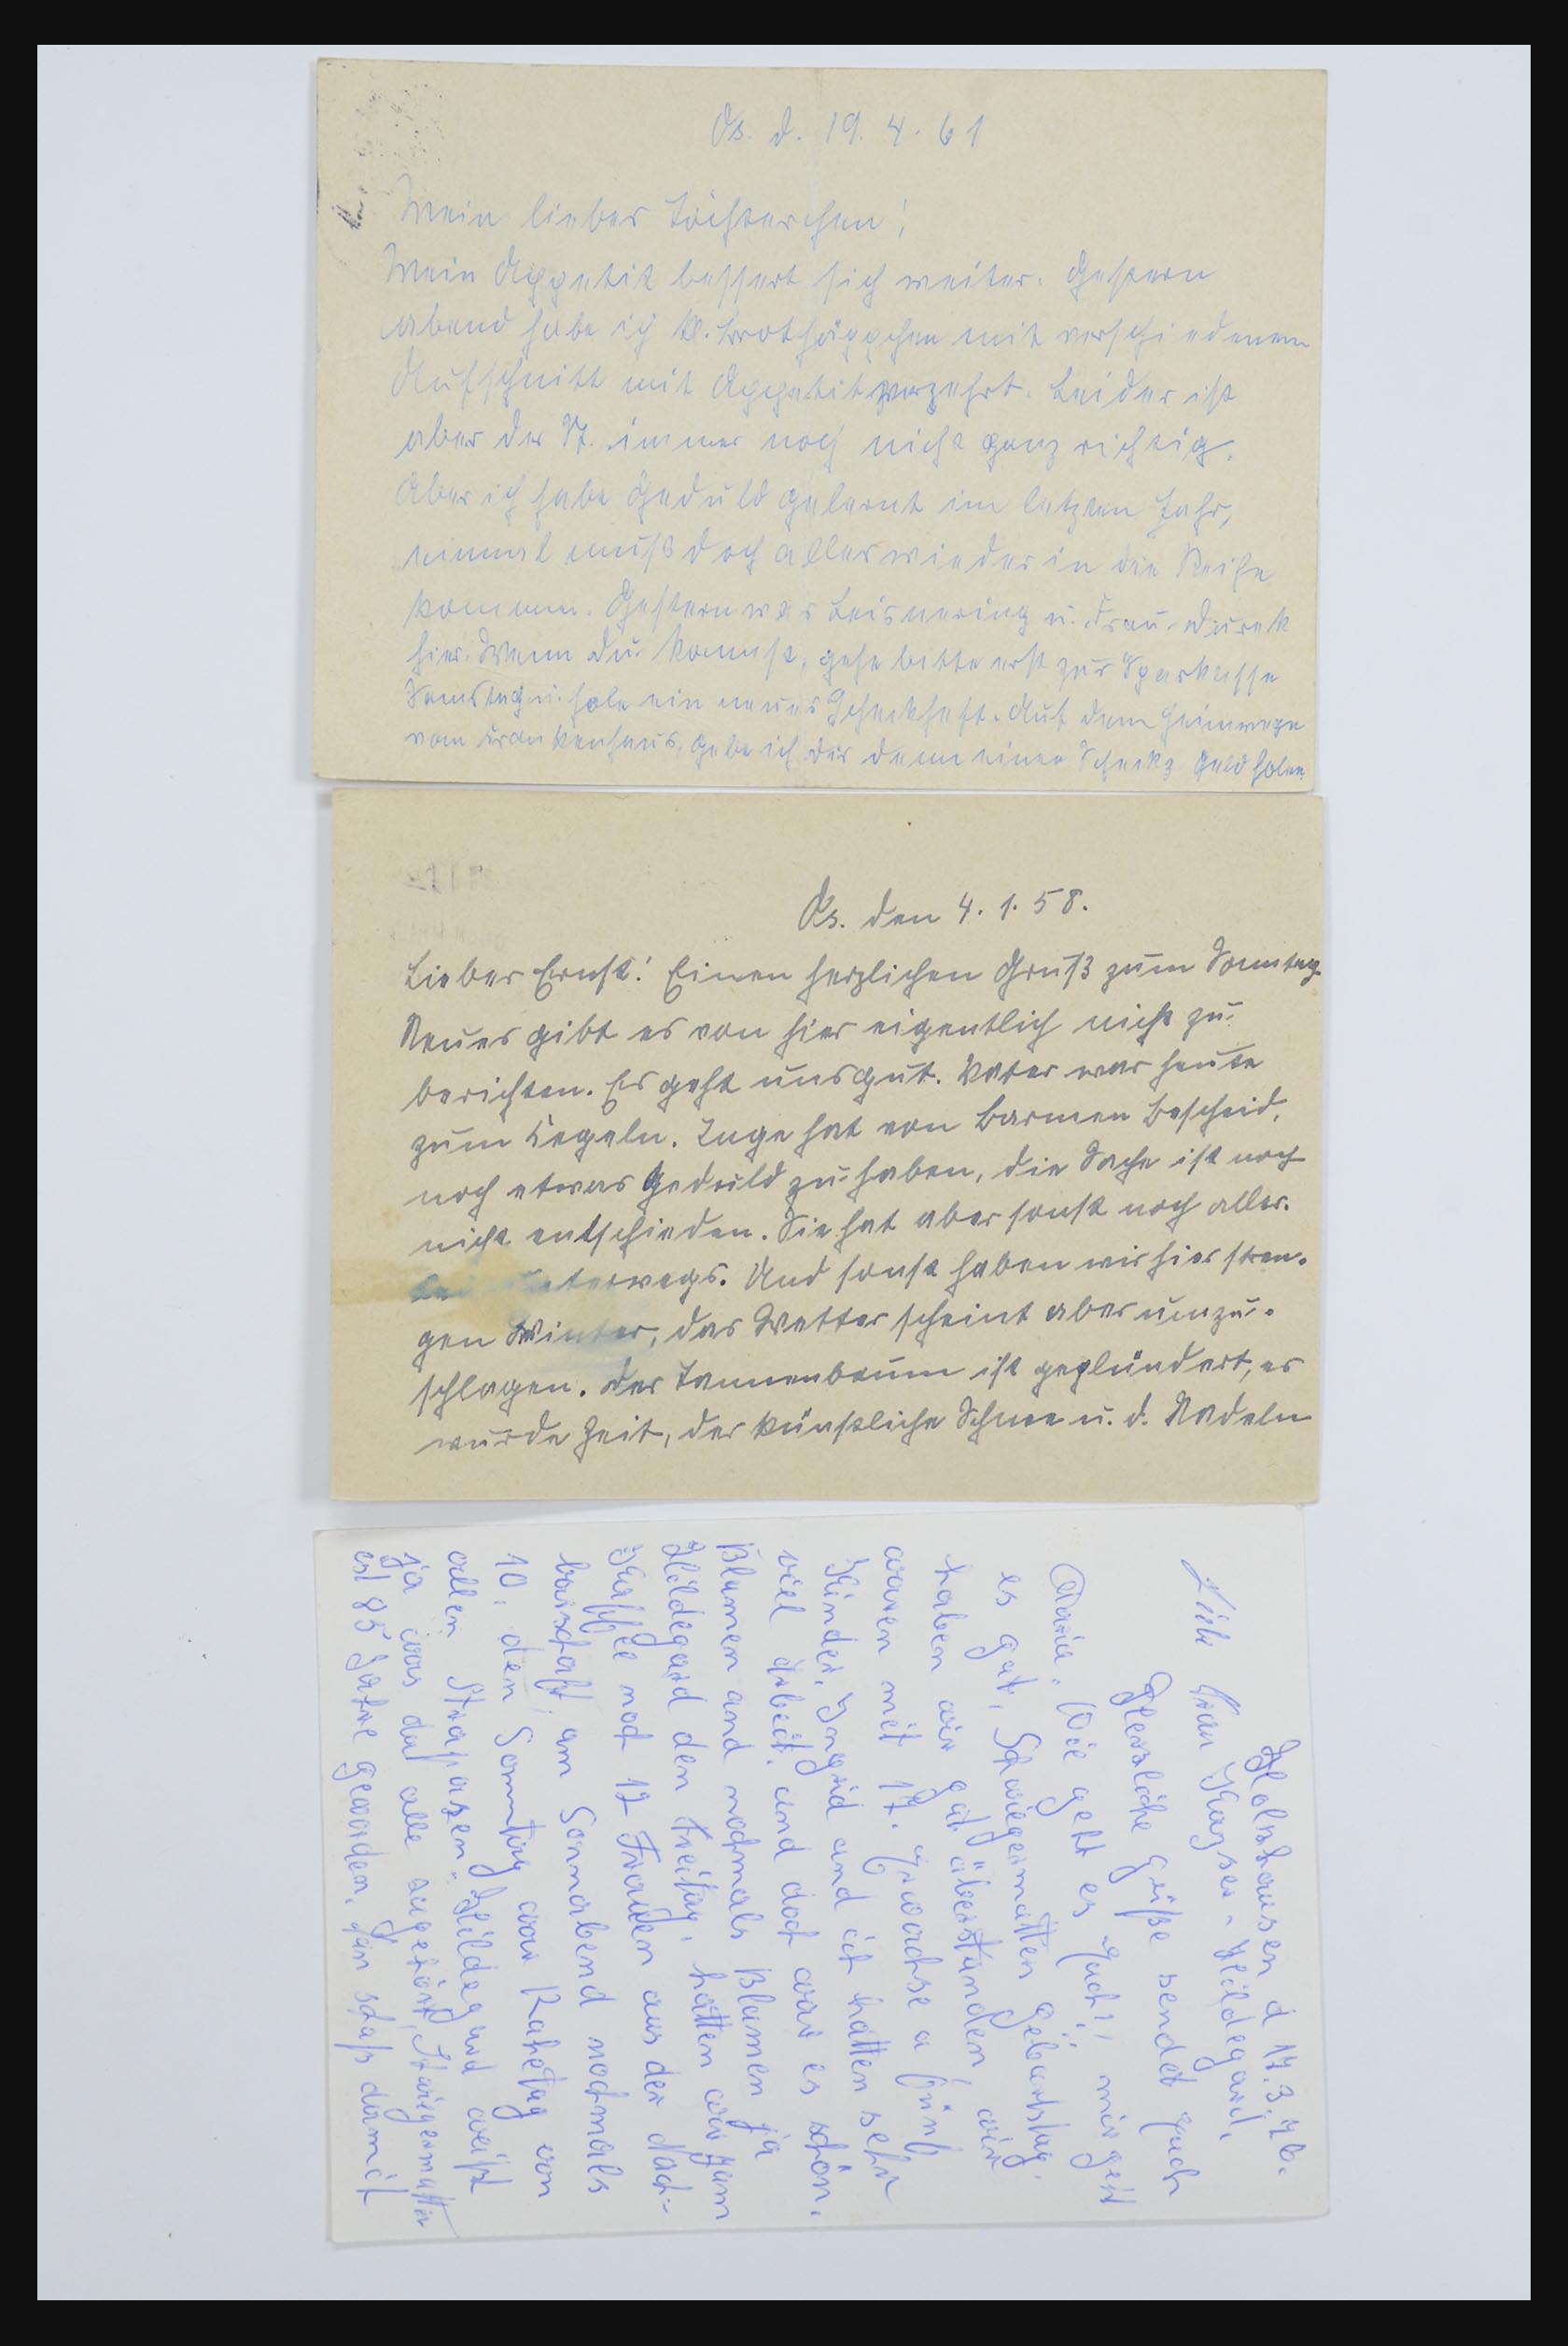 Os. d. 19. 4. 61
Mein liebes Töchterchen!
Mein Appetit bessert sich weiter. Gestern
abend habe ich kl. Brothäppchen mit verschiedenem
Aufschnitt mit Appetit verzehrt. Leider ist
aber der St. immer noch nicht ganz richtig.
Aber ich habe Geduld gelernt im letzten Jahr,
einmal muß doch alles wieder in die Reihe
kommen. Gestern war u. Frau
hier. Wenn du kommst, gehe bitte erst zur Sparkasse
Samstag u. hole ein neues Scheckheft. Auf dem Heimwege
vom Krankenhaus, gebe ich dir dann einen Scheck z Geld holen
Os. den 4. 1. 58.
Lieber Ernst! Einen herzlichen Gruß zum Sonntag.
Neues gibt es von hier eigentlich nicht zu
berichten. Es geht uns gut. Vater war heute
zum Kegeln. Inge hat von Barmen Bescheid,
noch etwas Geduld zu haben, die Sache ist noch
nicht entschieden. Sie hat aber sonst noch aller-
lei unterwegs. Und sonst haben wir hier stren-
gen Winter, das Wetter scheint aber umzu-
schlagen. Der Tannenbaum ist geplündert, es
wurde Zeit, der künstliche Schnee u. d. Nadeln
Holzhausen d 17.3.76.
Liebe Frau Kayser - Hildegard,
Herzliche grüße sendet Euch
Maria. Wie geht es Euch!, mir geht
es gut, Schwiegermutter geburtstag.
haben wir gut überstanden, wir
waren mit 17. erwachse u fünf
Kinder, Ingrid und ich hatten sehr
viel arbeit. und doch war es schön.
Blumen und nochmals Blumen ja
Hildegard den Freitag, hatten wir zum
Kaffee noch 12 Frauen aus der Nach-
barschaft, am Sonnabend nochmals
10. den Sonntag war Ruhetag von
allen Strapazen. Hildegard weißt
ja was da alle zugehört, Schwiegermutter
ist 85 Jahre geworden, damit